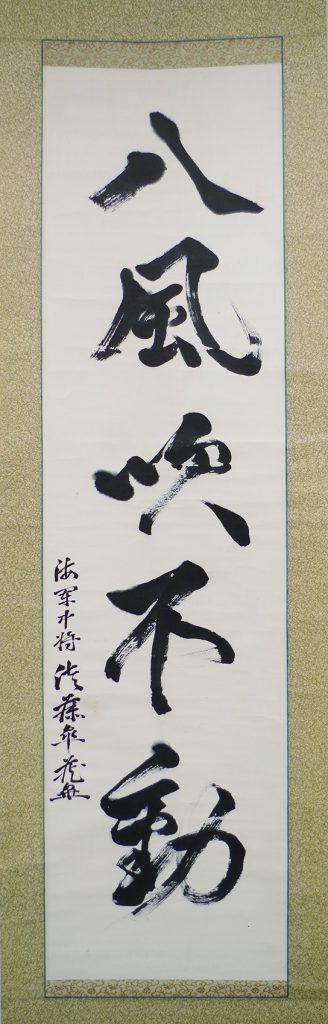 八風吹不動
海軍中将